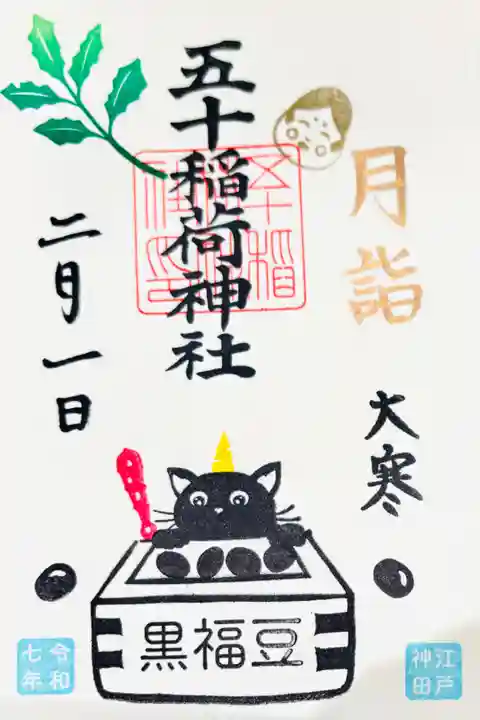 月詣
大寒
五十稲荷神社
二月一日
黒福豆
江戸
神田
令和
七年